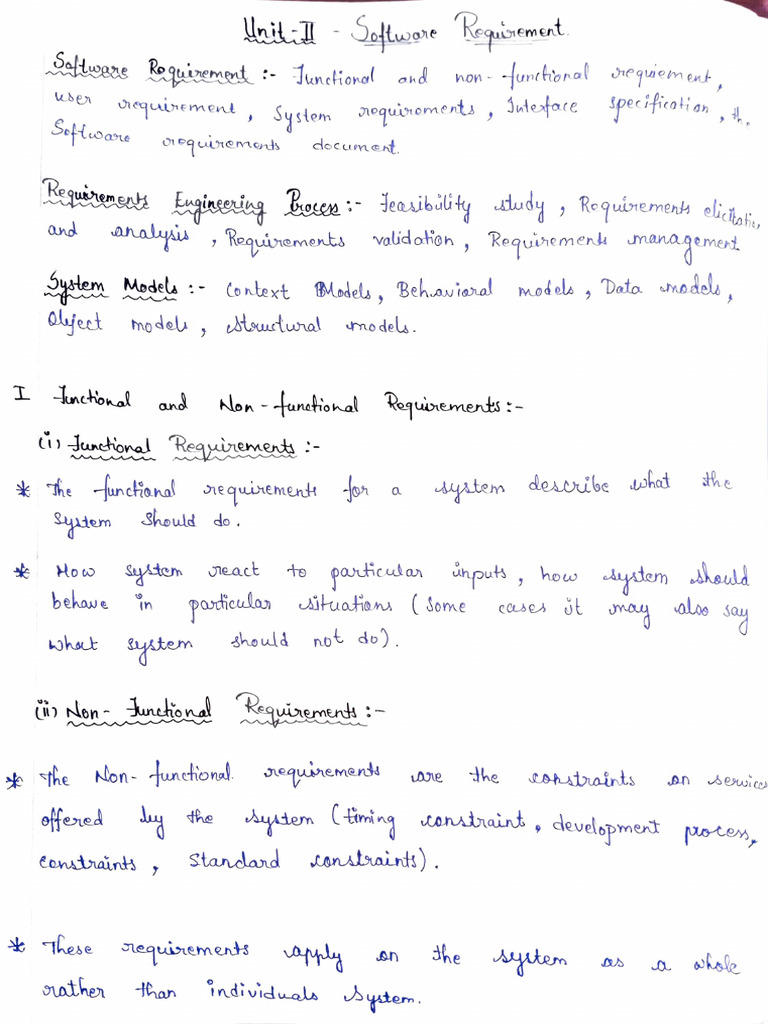 Unit-II - Software Requirement.
Software Requirement :- Functional and non-functional requiement,
user requirement, System requirements, Interface specification, th.
Software requirements document.
Requirements Engineering Process :- Feasibility study, Requirements elicitation
and analysis, Requirements validation, Requirements management
System Models :- Context Models, Behavioral models, Data models,
Object models, structural models.
I Functional and Non-functional Requirements:-
(i) Functional Requirements :-
* The functional requirements for a system describe what the
system should do.
* How system react to particular inputs, how system should
behave in particular situations (some cases it may also say
what system should not do).
(ii) Non-Functional Requirements :-
* The Non-functional requirements are the constraints on services
offered by the system (timing constraint, development process,
constraints, Standard constraints).
* These requirements apply on the system as a whole
rather than individuals System.